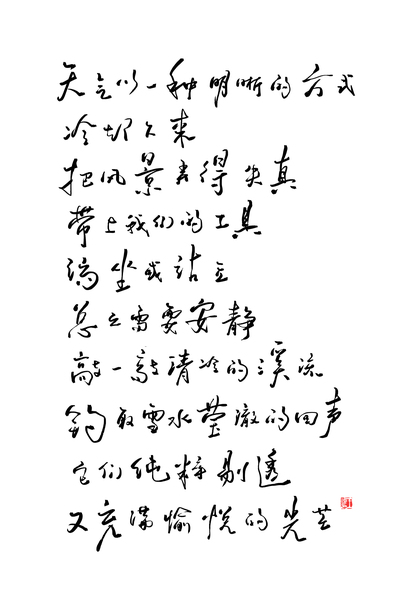 天气以一种明晰的方式
冷却下来
把风景看得失真
帶上我们的工具
端坐或站立
总之需要安静
敲一敲清冷的溪流
钓取雪水莹澈的回声
它们纯粹剔透
又充满愉悦的光芒